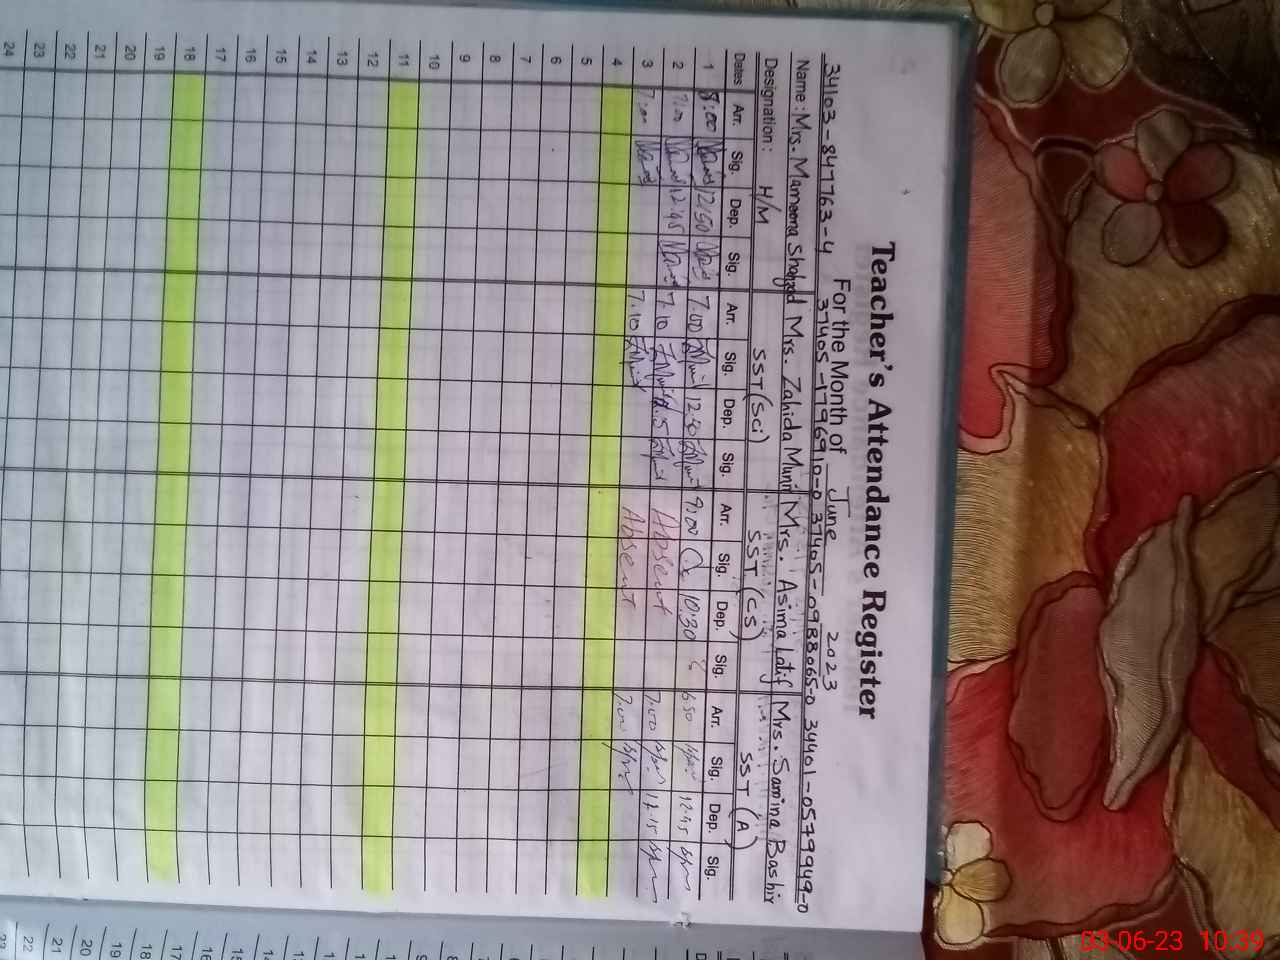 Teacher's Attendance Register
For the Month of June 2023
34103-847763-4 37405-1796910-0 37405-0988065-0 34401-0579949-0
Name: Mrs. Mamoona Shahzad Mrs. Zahida Munir Mrs. Asima Latif Mrs. Samina Bashir
Designation: H/M SST(Sci) SST (CS) SST (A)
Dates Arr. Sig. Dep. Sig. Arr. Sig. Dep. Sig. Arr. Sig. Dep. Sig. Arr. Sig. Dep. Sig.
1 8:00 12:50 7.00 12.50 9:00 10:30 6:50 12:45
2 7:00 12:45 7.10 Absent 7:00 12.15
3 7:00 7.10 Absent 7:00
4
5
6
7
8
9
10
11
12
13
14
15
16
17
18
19
20
21
22
23
24
15
16
17
18
19
20
21
22
23
03-06-23 10:39